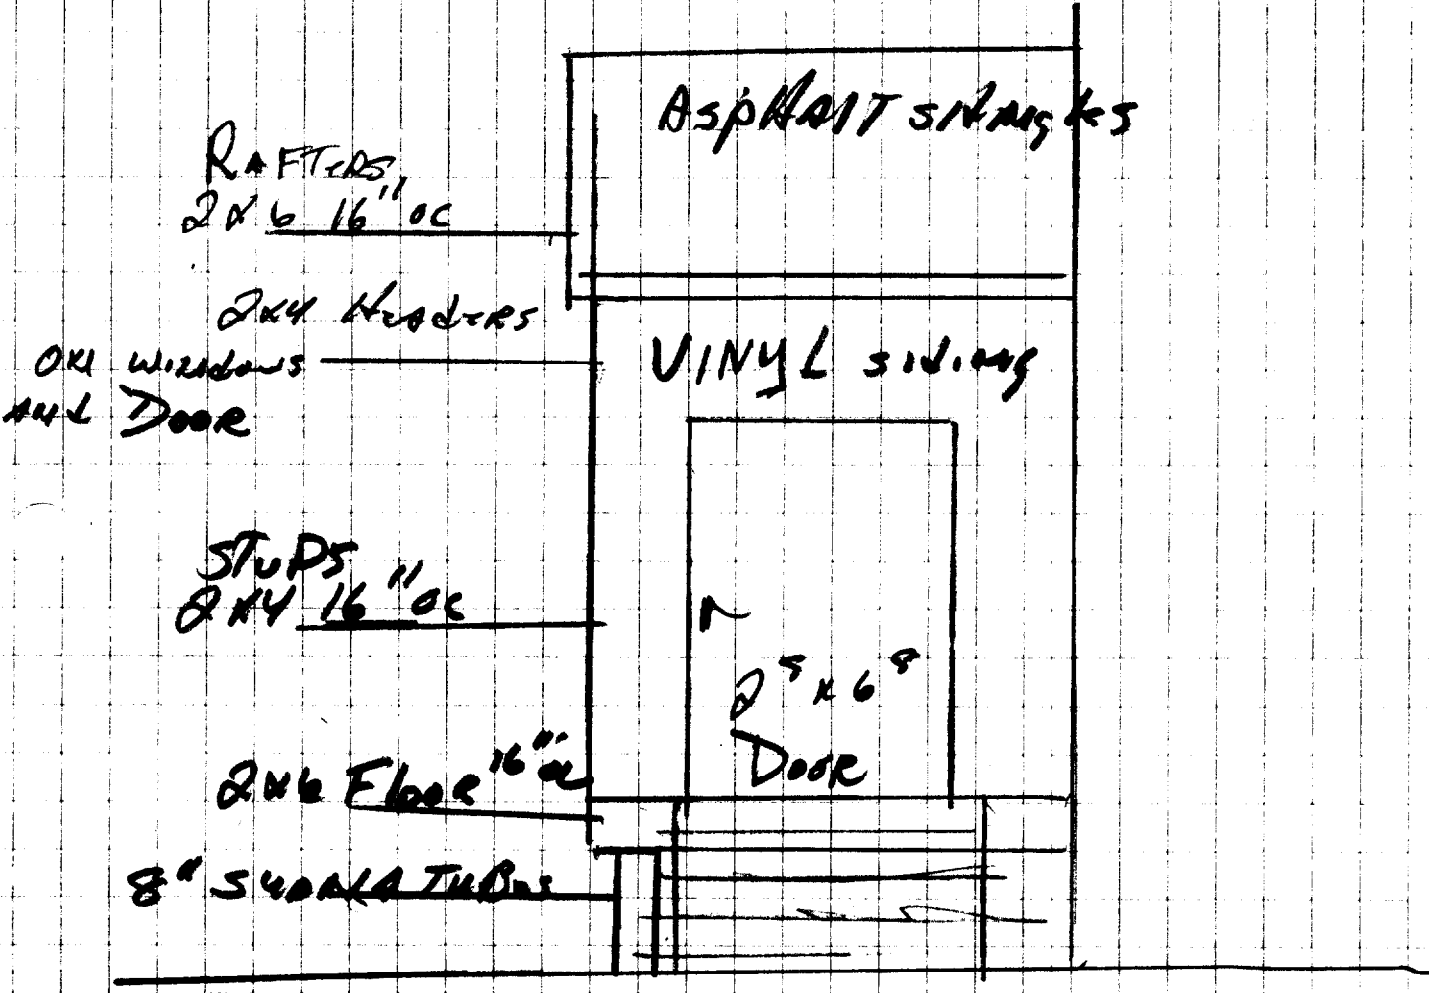 Asphalt shingles
Rafters
2x6 16" oc
2x4 Headers
on windows
and Door
Vinyl siding
Studs
2x4 16" oc
2⁸ x 6⁸
Door
2x6 Floor 16" oc
8" Tubes